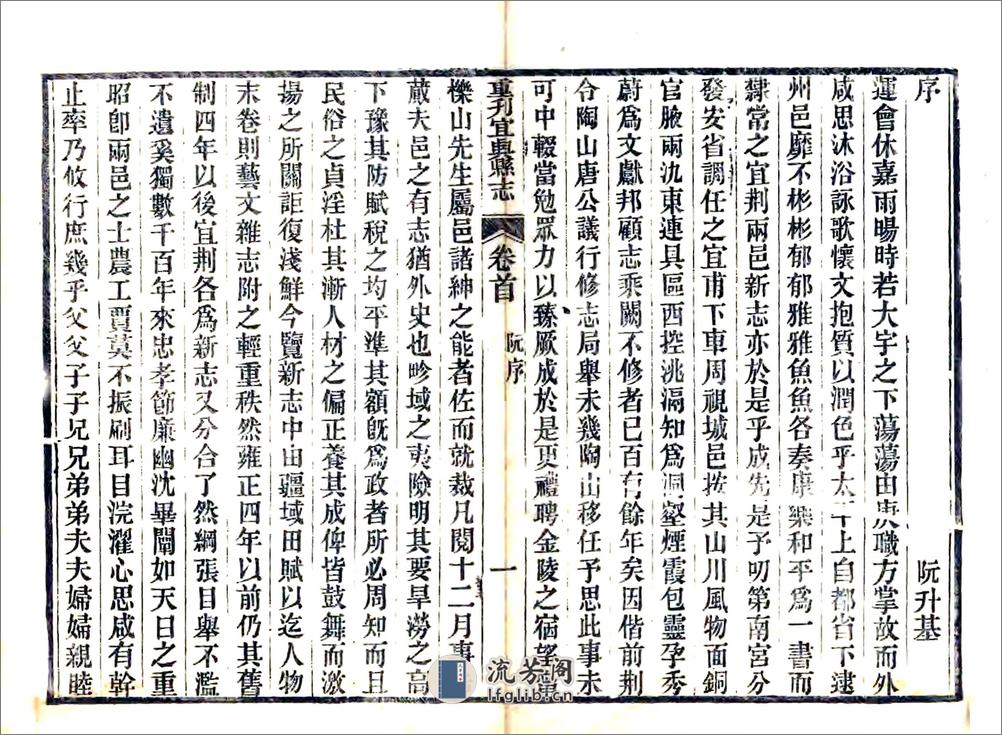 序 阮升基
運會休嘉雨暘時若大宇之下蕩蕩由庚職方掌故而外
咸思沐浴詠歌懷文抱質以潤色乎太平上自都省下逮
州邑靡不彬彬郁郁雅雅魚魚各奏康樂和平爲一書而
隸常之宜荆兩邑新志亦於是乎成先是予叨第南宮分
發安省調任之宜甫下車周視城邑按其山川風物面銅
官腋兩氿東連具區西控洮滆知爲洞壑煙霞包靈孕秀
蔚爲文獻邦顧志乘闕不修者已百有餘年矣因偕前荆
令陶山唐公議行修志局舉未幾陶山移任予思此事未
可中輟當勉眾力以臻厥成於是更禮聘金陵之宿望
重刋宜興縣志 卷首 阮序 一
櫟山先生屬邑諸紳之能者佐而就裁凡閱十二月事
蕆夫邑之有志猶外史也畛域之夷險明其要旱澇之高
下豫其防賦稅之均平準其額旣爲政者所必周知而且
民俗之貞淫杜其漸人材之偏正養其成俾皆鼓舞而激
揚之所關詎復淺鮮今覽新志中由疆域田賦以迄人物
末卷則藝文雜志附之輕重秩然雍正四年以前仍其舊
制四年以後宜荆各爲新志又分合了然綱張目舉不濫
不遺奚獨數千百年來忠孝節廉幽沈畢闡如天日之重
昭卽兩邑之士農工賈莫不振刷耳目浣濯心思咸有幹
止率乃攸行庶幾乎父父子子兄兄弟弟夫夫婦婦親睦
流芳阁
lfglib.cn